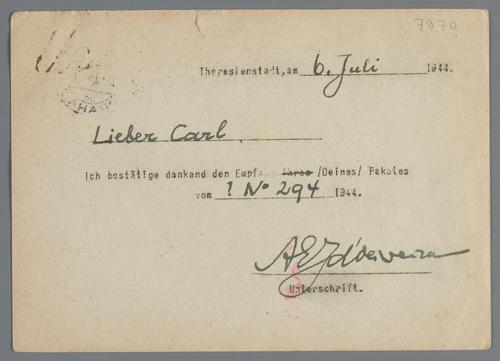 7870
Theresienstadt, am 6. Juli 1944.
Lieber Carl,
Ich bestätige dankend den Empfang Ihres /Deines/ Paketes
vom ! No 294 1944.
Unterschrift.